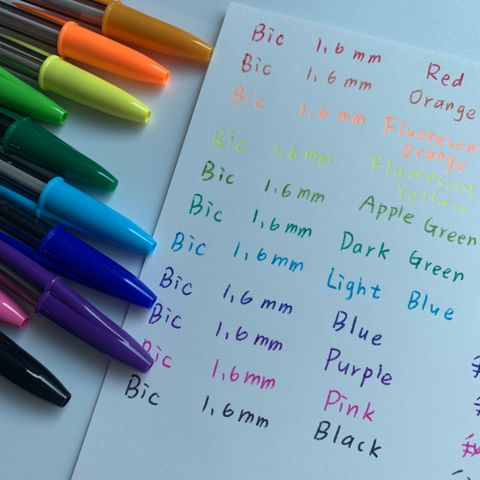 Bic 1,6mm Red
Bic 1,6mm Orange
Bic 1,6mm Fluoresent Orange
Bic 1,6mm Fluoresent Yellow
Bic 1,6mm Apple Green
Bic 1,6mm Dark Green
Bic 1,6mm Light Blue
Bic 1,6mm Blue
Bic 1,6mm Purple
Bic 1,6mm Pink
Bic 1,6mm Black